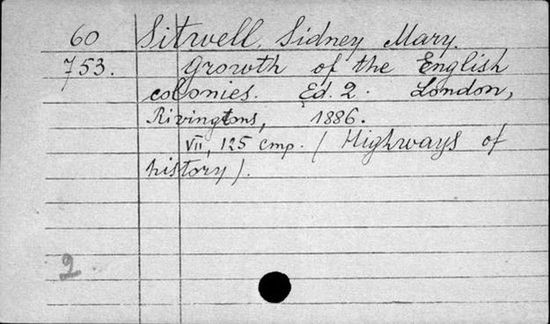 60 Sitwell, Sidney Mary.
753. Growth of the English
colonies. Ed. 2. London,
Rivingtons, 1886.
VII, 125 cmp. (Highways of
history).
2